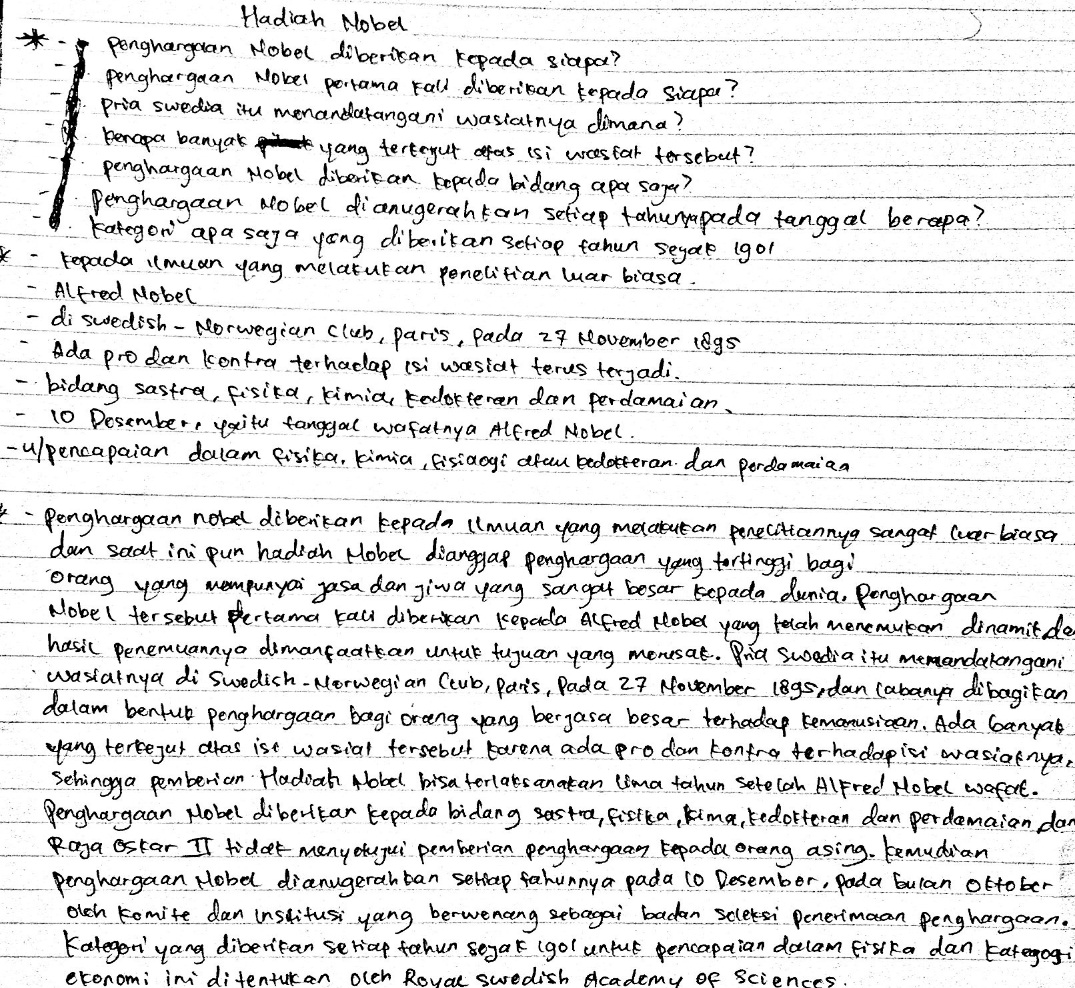 Hadiah Nobel
* - Penghargaan Nobel diberikan kepada siapa?
- penghargaan Nobel pertama kali diberikan kepada siapa?
- pria swedia itu menandatangani wasiatnya dimana?
- berapa banyak yang terkejut atas isi wasiat tersebut?
- penghargaan Nobel diberikan kepada bidang apa saja?
- Penghargaan Nobel dianugerahkan setiap tahunnya pada tanggal berapa?
- Kategori apa saja yang diberikan setiap tahun sejak 1901
* - kepada ilmuan yang melakukan penelitian luar biasa.
- Alfred Nobel
- di swedish - Norwegian Club, paris, pada 27 November 1895
- Ada pro dan kontra terhadap isi wasiat terus terjadi.
- bidang sastra, fisika, kimia, kedokteran dan perdamaian.
- 10 Desember, yaitu tanggal wafatnya Alfred Nobel.
- u/pencapaian dalam fisika, kimia, fisiaogi atau kedokteran dan perdamaian
* - Penghargaan nobel diberikan kepada ilmuan yang melakukan penelitiannya sangat luar biasa
dan saat ini pun hadiah Nobel dianggap penghargaan yang tertinggi bagi
orang yang mempunyai jasa dan jiwa yang sangat besar kepada dunia. Penghargaan
Nobel tersebut Pertama kali diberikan kepada Alfred Nobel yang telah menemukan dinamit da
hasil penemuannya dimanfaatkan untuk tujuan yang merusak. Pria Swedia itu memandatangani
wasiatnya di Swedish - Norwegian Club, Paris, Pada 27 November 1895, dan labanya dibagikan
dalam bentuk penghargaan bagi orang yang berjasa besar terhadap kemanusiaan. Ada banyak
yang terkejut atas isi wasiat tersebut karena ada pro dan kontra terhadap isi wasiatnya,
Sehingga pemberian Hadiah Nobel bisa terlaksanakan lima tahun setelah Alfred Nobel wafat.
Penghargaan Nobel diberikan kepada bidang sastra, fisika, kima, kedokteran dan perdamaian, dan
Raja Oskar II tidak menyetujui pemberian penghargaan kepada orang asing. kemudian
penghargaan Nobel dianugerahkan setiap tahunnya pada 10 Desember, pada bulan Oktober
oleh komite dan institusi yang berwenang sebagai badan seleksi penerimaan penghargaan.
Kategori yang diberikan setiap tahun sejak 1901 untuk pencapaian dalam fisika dan kategogi
ekonomi ini ditentukan oleh Royal Swedish Academy of Sciences.